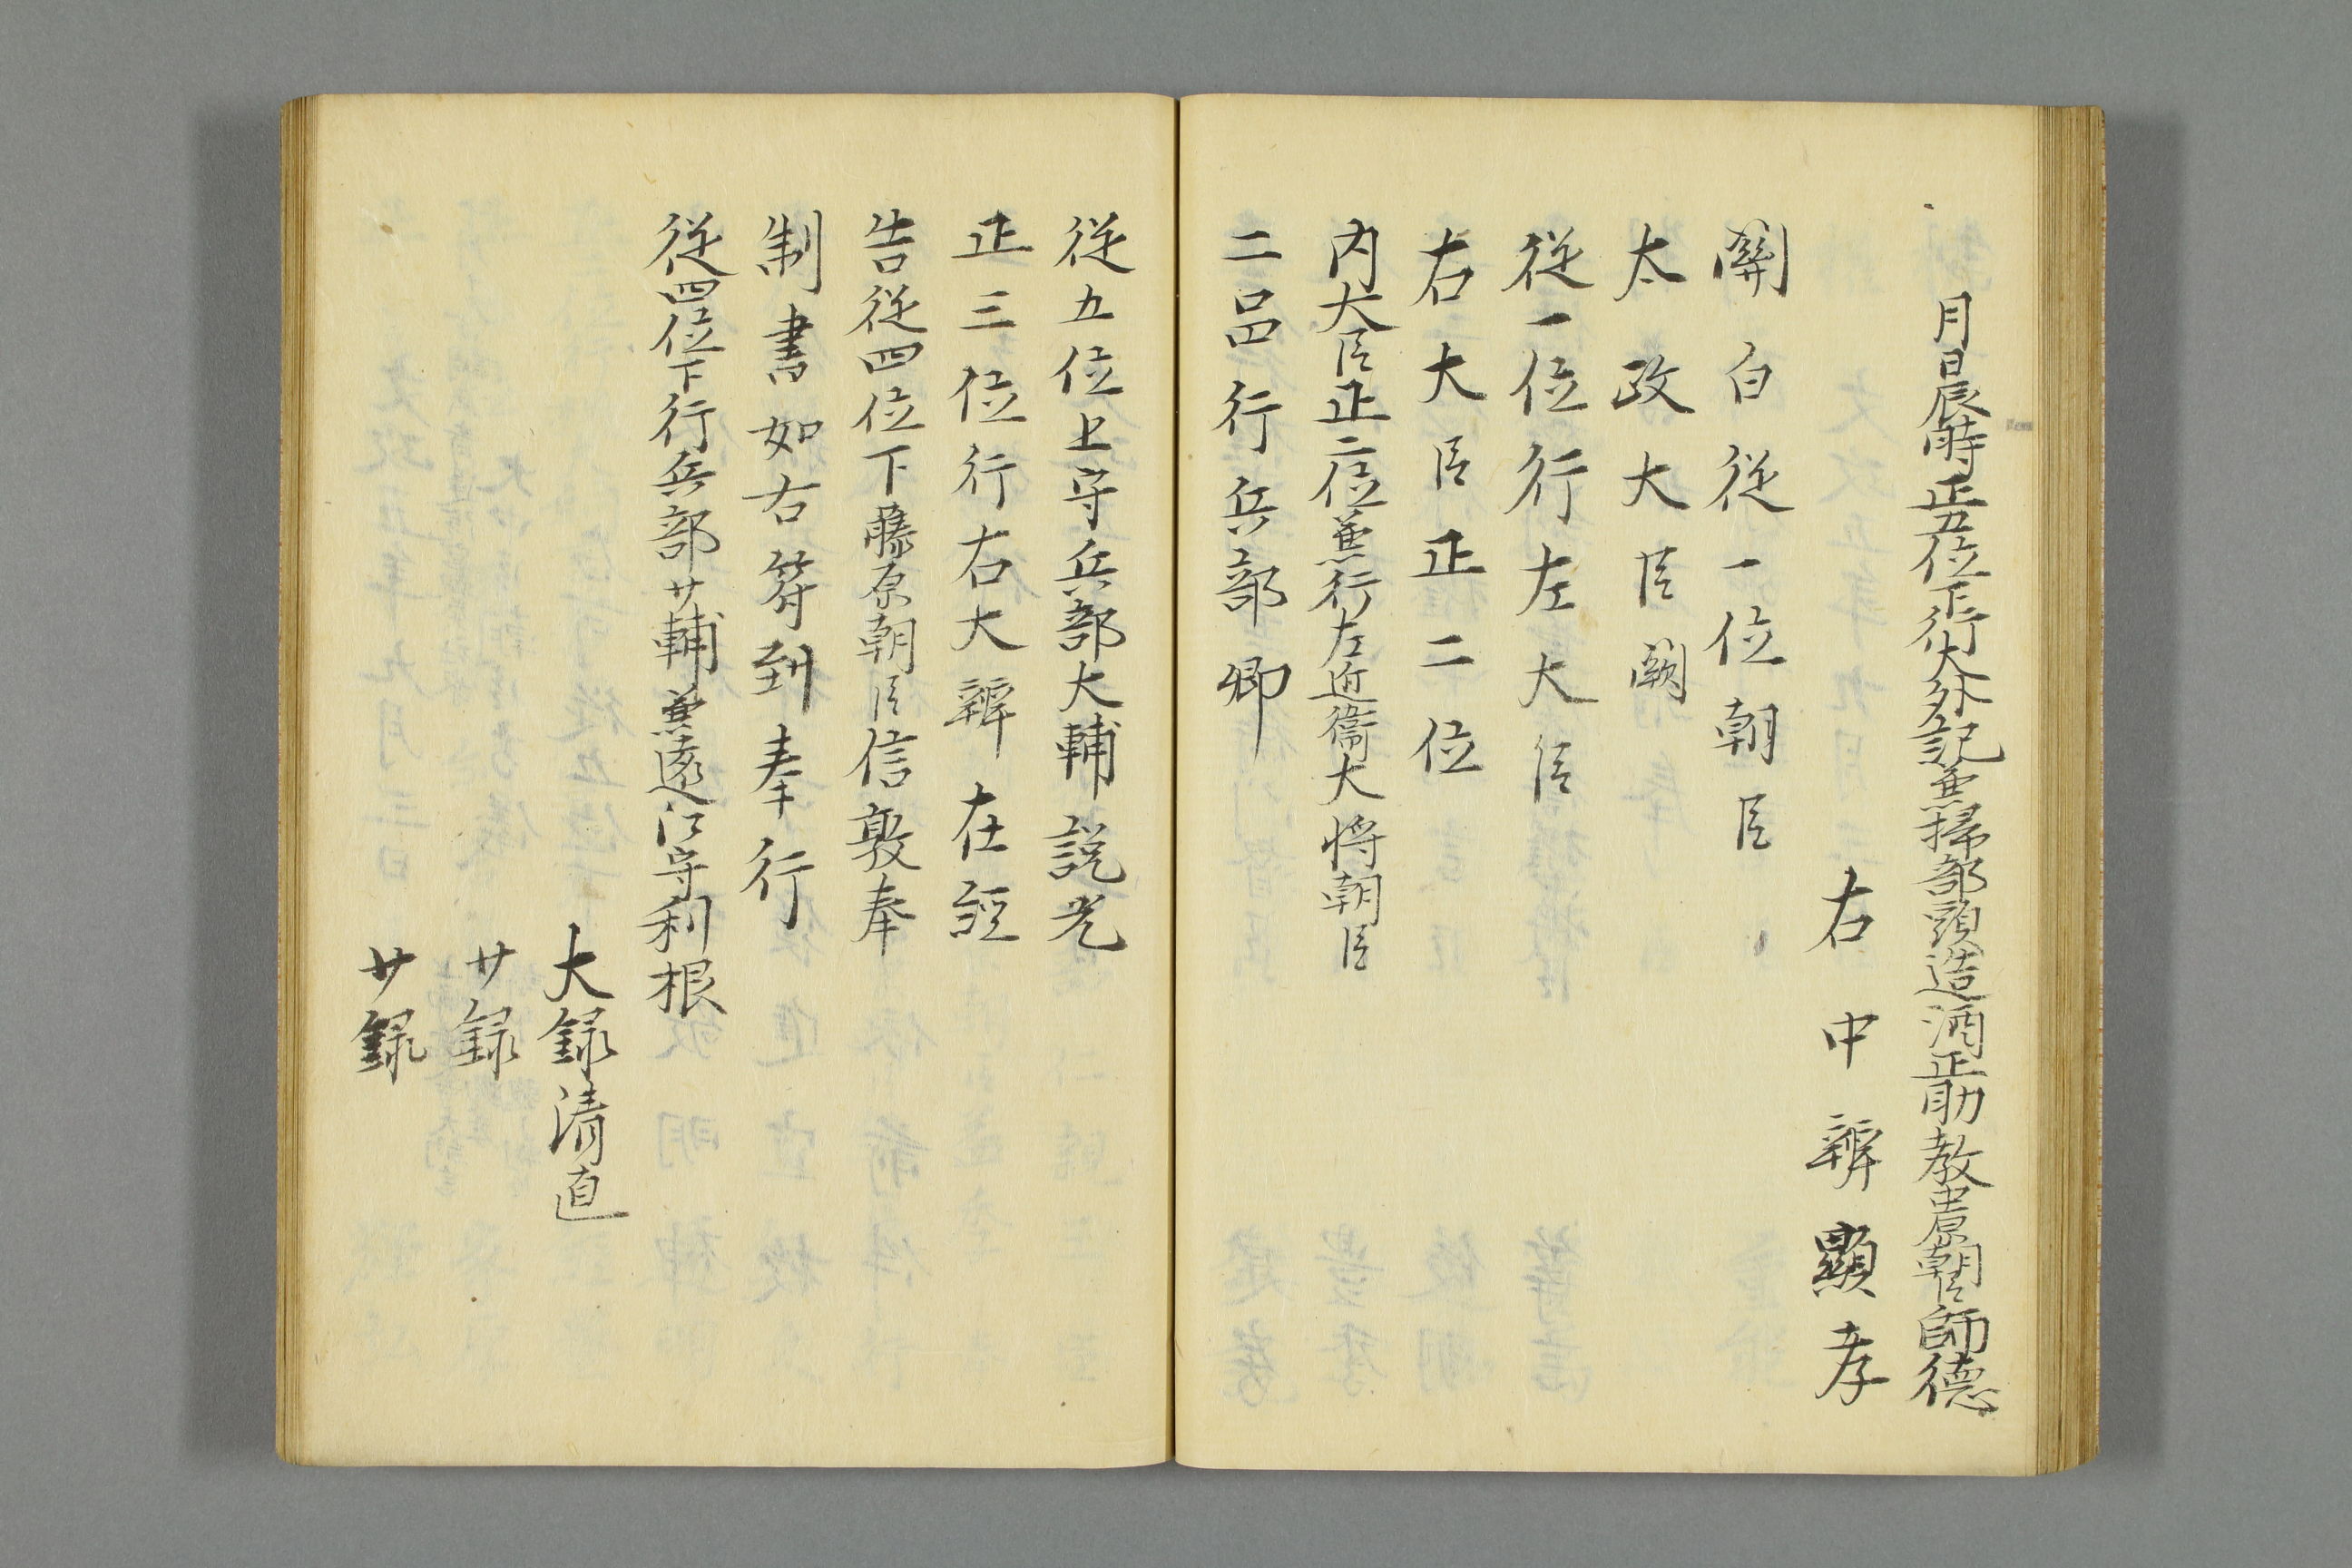 月日辰時正五位下行大外記兼掃部頭造酒正助教中原朝臣師徳
右中辨顕孝
關白従一位朝臣
太政大臣闕
従一位行左大臣
右大臣正二位
内大臣正二位兼行左近衛大将朝臣
二品行兵部卿
従五位上守兵部大輔説光
正三位行右大辨在經
告従四位下藤原朝臣信敦奉
制書如右符到奉行
従四位下行兵部少輔兼遠江守利根
大録清直
少録
少録